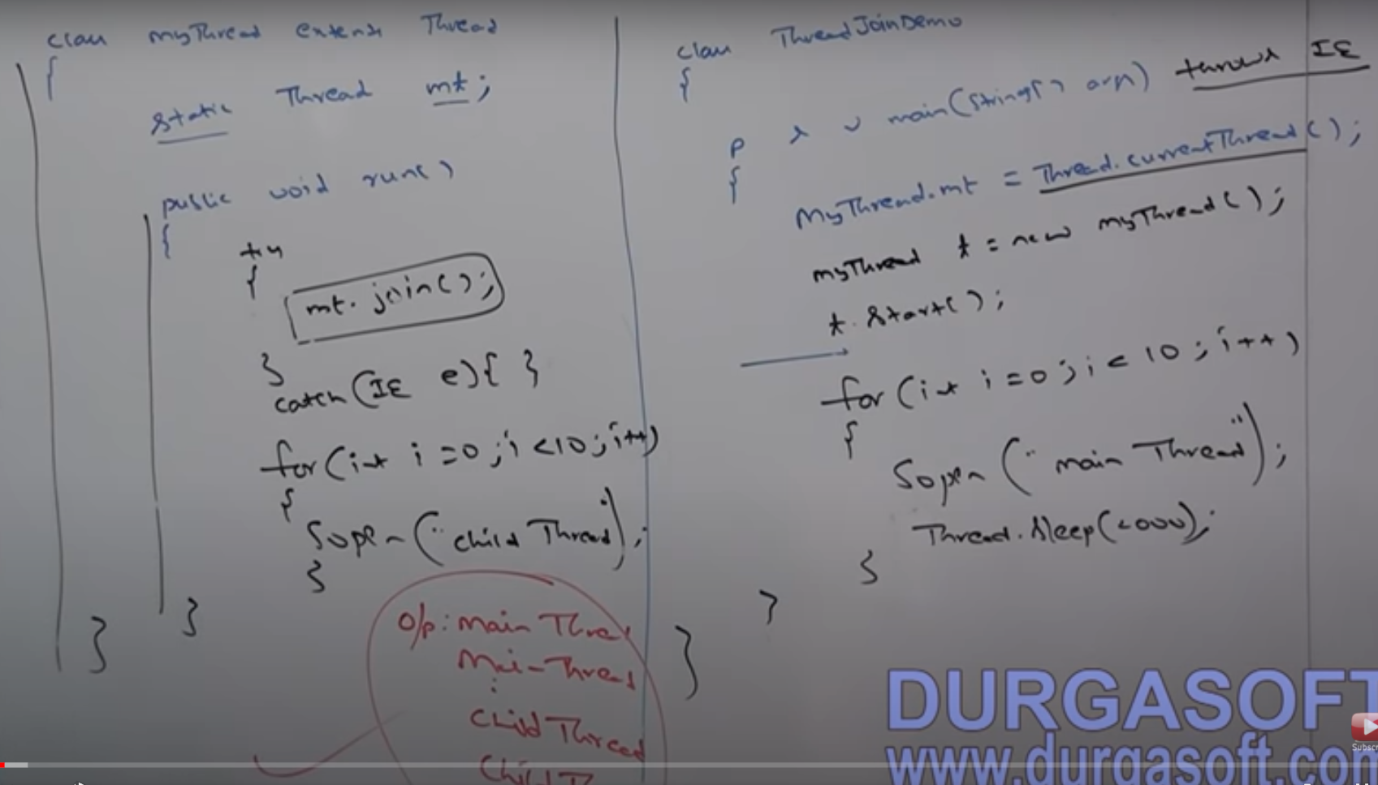 class myThread extends Thread
{
static Thread mt;
public void run()
{
try
{
mt.join();
}
catch(IE e){ }
for(int i=0;i<10;i++)
{
Sopln("child Thread");
}
}
}
o/p: main Thread
Main Thread
:
Child Thread
class ThreadJoinDemo
{
p s v main(String[] args) throws IE
{
MyThread.mt = Thread.currentThread();
myThread t = new myThread();
t.start();
for(int i=0;i<10;i++)
{
Sopln("main Thread");
Thread.sleep(2000);
}
}
}
DURGASOFT
www.durgasoft.com